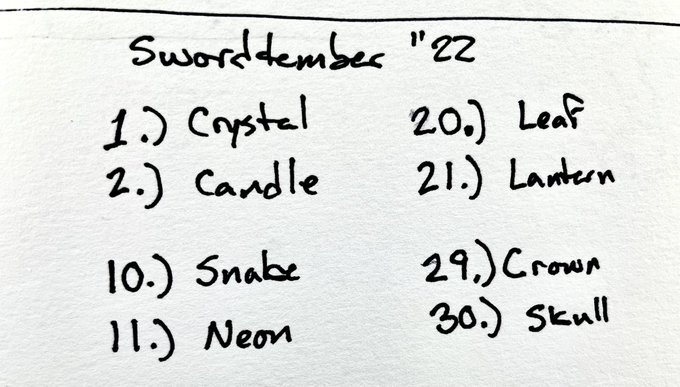 Swordtember "22
1.) Crystal
2.) Candle
10.) Snake
11.) Neon
20.) Leaf
21.) Lantern
29.) Crown
30.) Skull